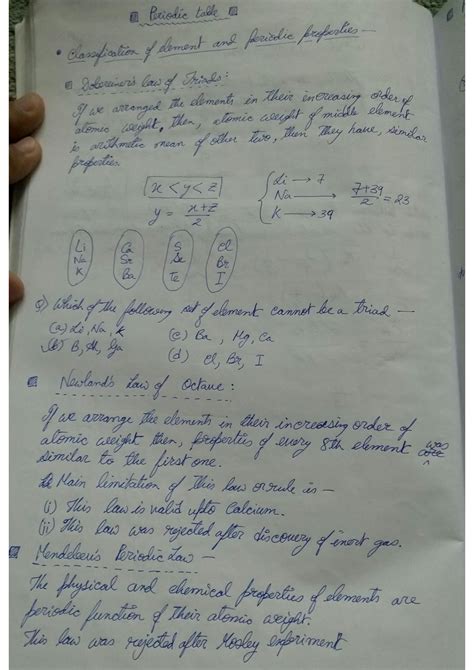 Periodic table
• Classification of element and periodic properties —
Dobereiner's law of Triads:
If we arranged the elements in their increasing order of
atomic weight, then, atomic weight of middle element
is arithmetic mean of other two, then they have similar
properties.
x < y < z
y = x+z/2
Li → 7
Na → 7+39/2 = 23
K → 39
Li Na K
Ca Sr Ba
S Se Te
Cl Br I
Q) Which of the following set of element cannot be a triad —
(a) Li, Na, K (c) Ba, Mg, Ca
(b) B, Al, Ga (d) Cl, Br, I
Newland's Law of Octave :
If we arrange the elements in their increasing order of
atomic weight then, properties of every 8th element was
similar to the first one.
Main limitation of This law or rule is —
(i) This law is valid upto Calcium.
(ii) This law was rejected after discovery of inert gas.
Mendeleev's Periodic Law —
The physical and chemical properties of elements are
periodic function of their atomic weight.
This law was rejected after Mosley experiment